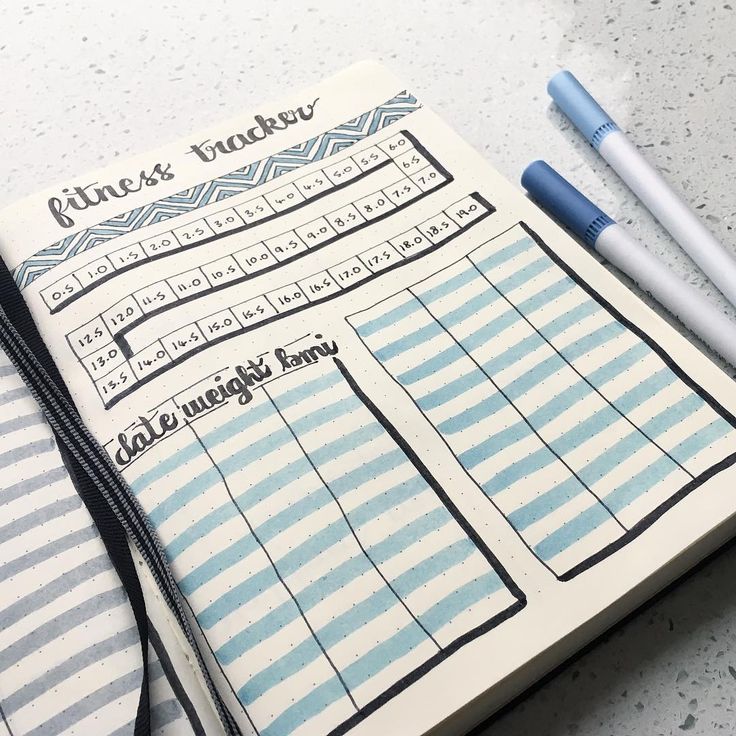 fitness tracker
0.5 1.0 1.5 2.0 2.5 3.0 3.5 4.0 4.5 5.0 5.5 6.0
6.5
12.5 12.0 11.5 11.0 10.5 10.0 9.5 9.0 8.5 8.0 7.5 7.0
13.0
13.5 14.0 14.5 15.0 15.5 16.0 16.5 17.0 17.5 18.0 18.5 19.0
date weight bmi